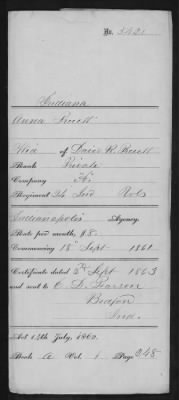 No. 3421
Indiana
Anna Pruett
of David R. Pruett
Rank Private
Company H
Regiment 24 Ind Vols
Indianapolis Agency.
Rate per month, $8.
Commencing 18th Sept 1861
Certificate dated 5th Sept 1863
and sent to
Bedford
Ind.
Act 14th July, 1862.
Book A Vol. 1 Page 248